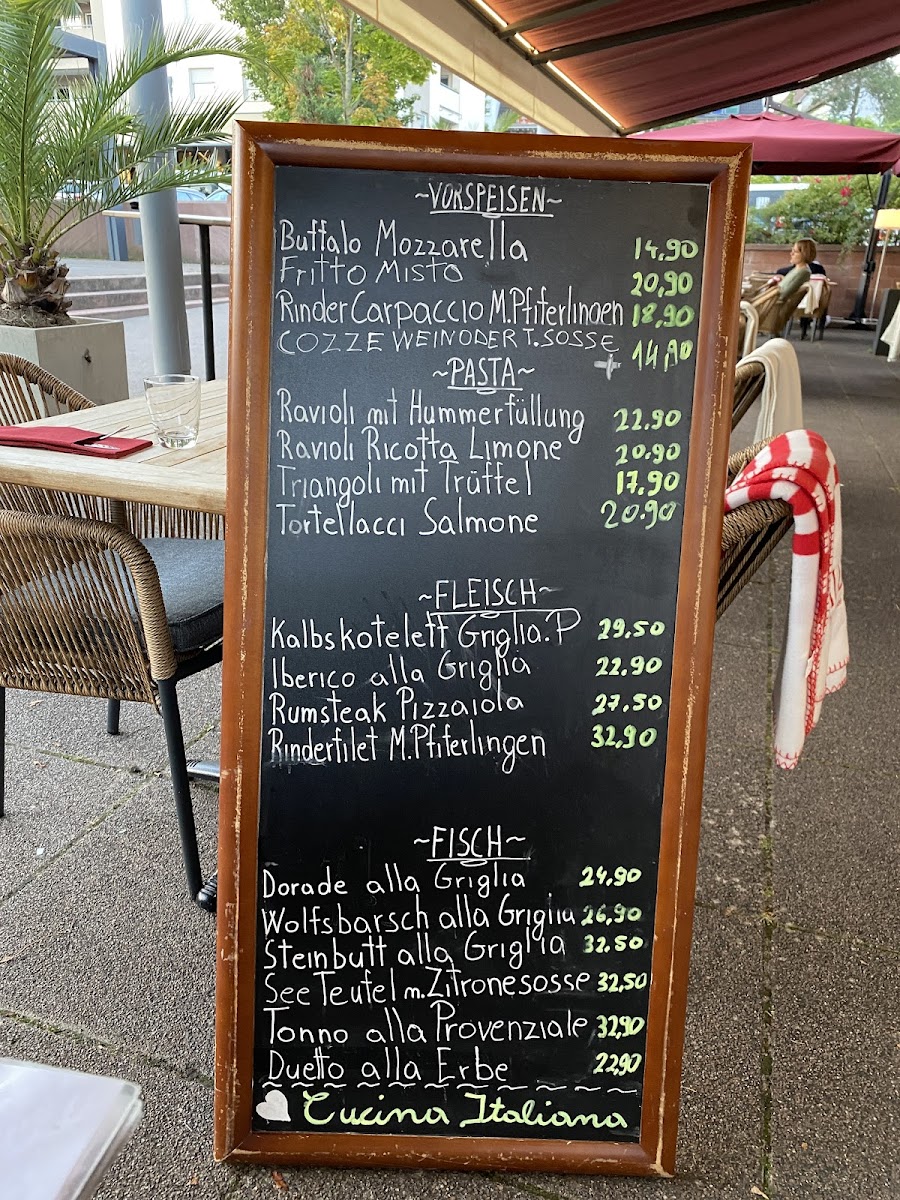 ~VORSPEISEN~
Buffalo Mozzarella 14,90
Fritto Misto 20,90
RinderCarpaccio M.Pfiferlingen 18,90
COZZE WEIN ODER T.SOSSE 14,90
~PASTA~
Ravioli mit Hummerfüllung 22.90
Ravioli Ricotta Limone 20.90
Triangoli mit Trüffel 17.90
Tortellacci Salmone 20.90
~FLEISCH~
Kalbskotelett Griglia.P 29.50
Iberico alla Griglia 22.90
Rumsteak Pizzaiola 27.50
Rinderfilet M.Pfiferlingen 32,90
~FISCH~
Dorade alla Griglia 24.90
Wolfsbarsch alla Griglia 26,90
Steinbutt alla Griglia 32.50
See Teufel m.Zitronesosse 32,50
Tonno alla Provenziale 32,90
Duetto alla Erbe 22,90
Cucina Italiana